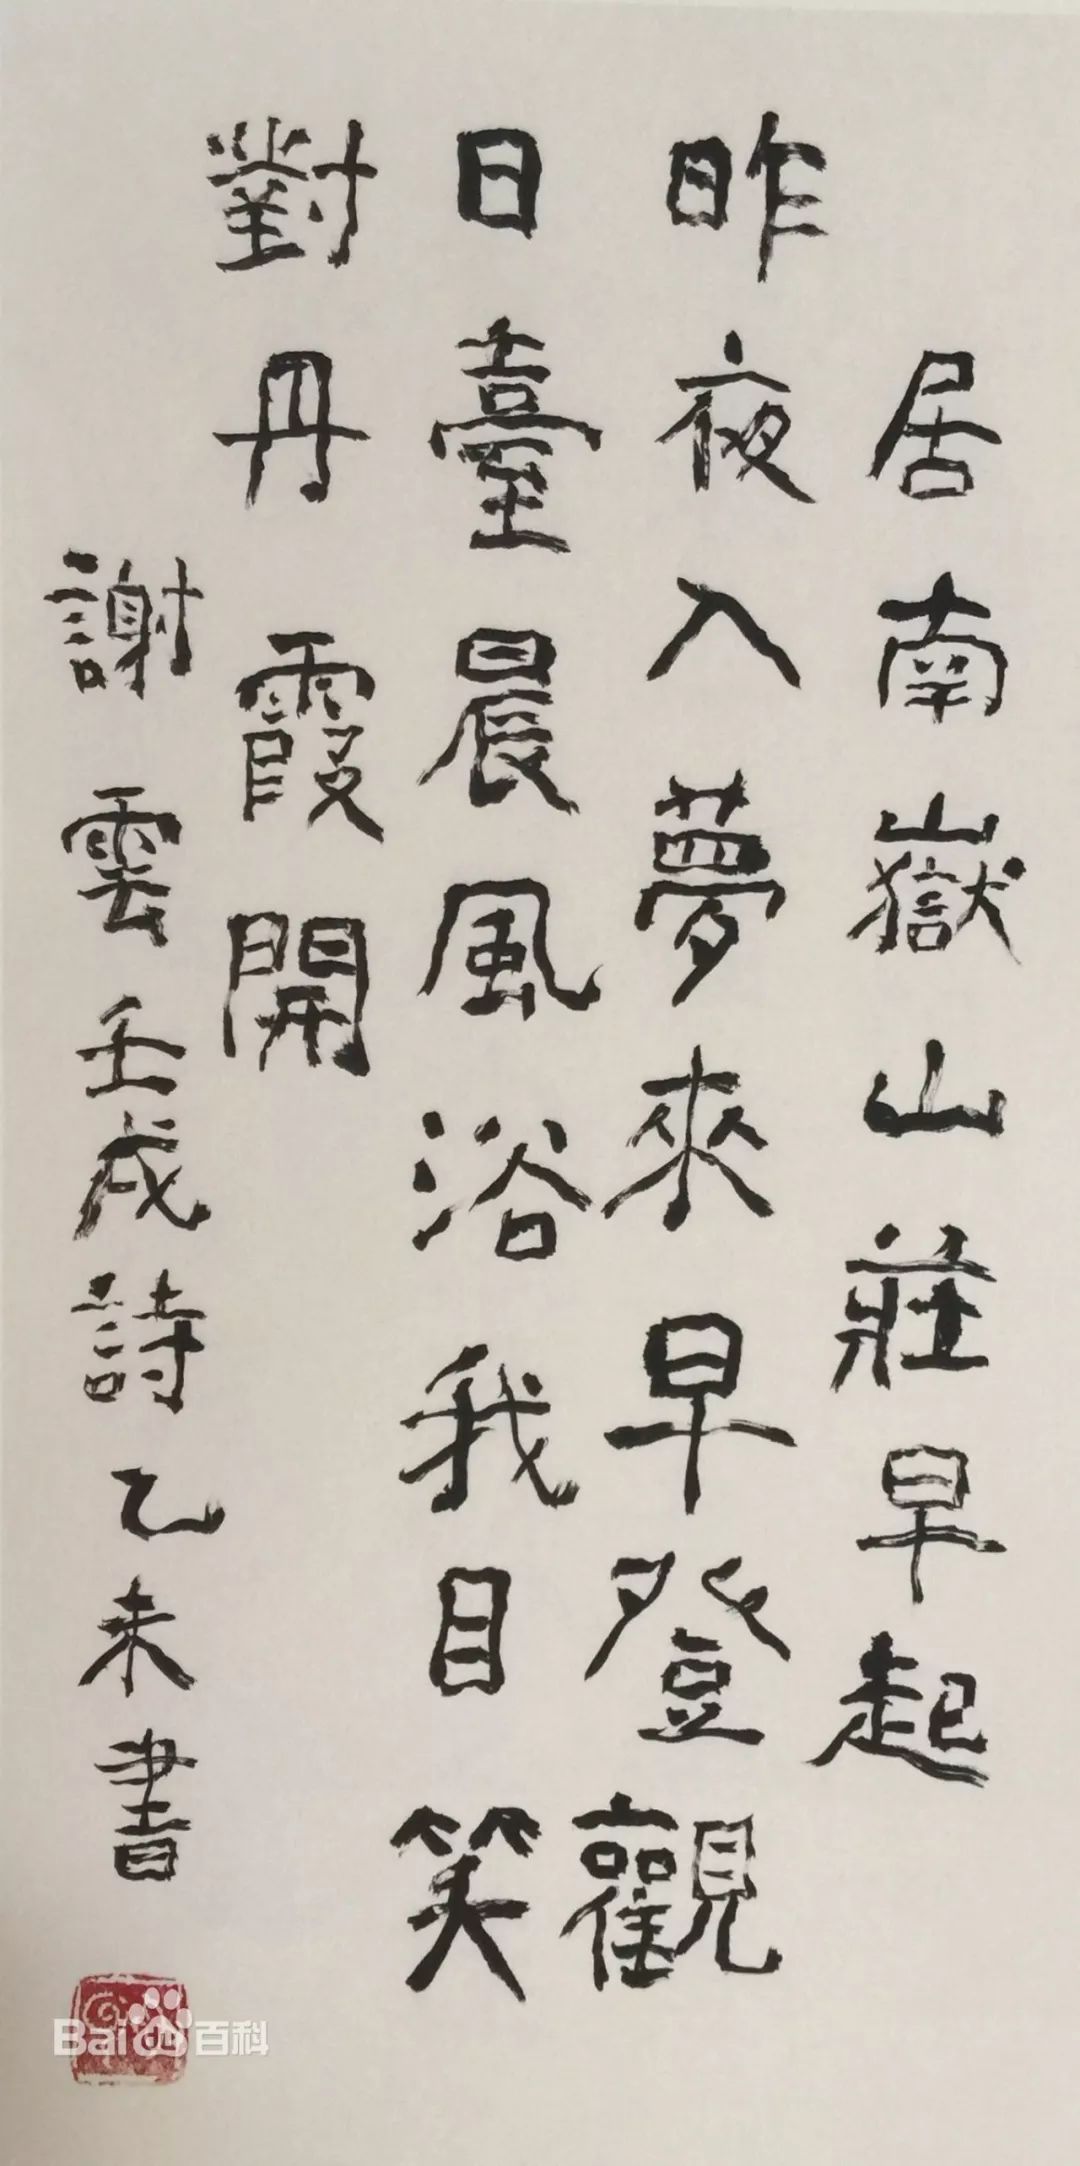 居南嶽山莊早起
昨夜入夢來早登觀
日臺晨風浴我目笑
對丹霞開
謝雲壬戌詩乙未書
Bai 百科